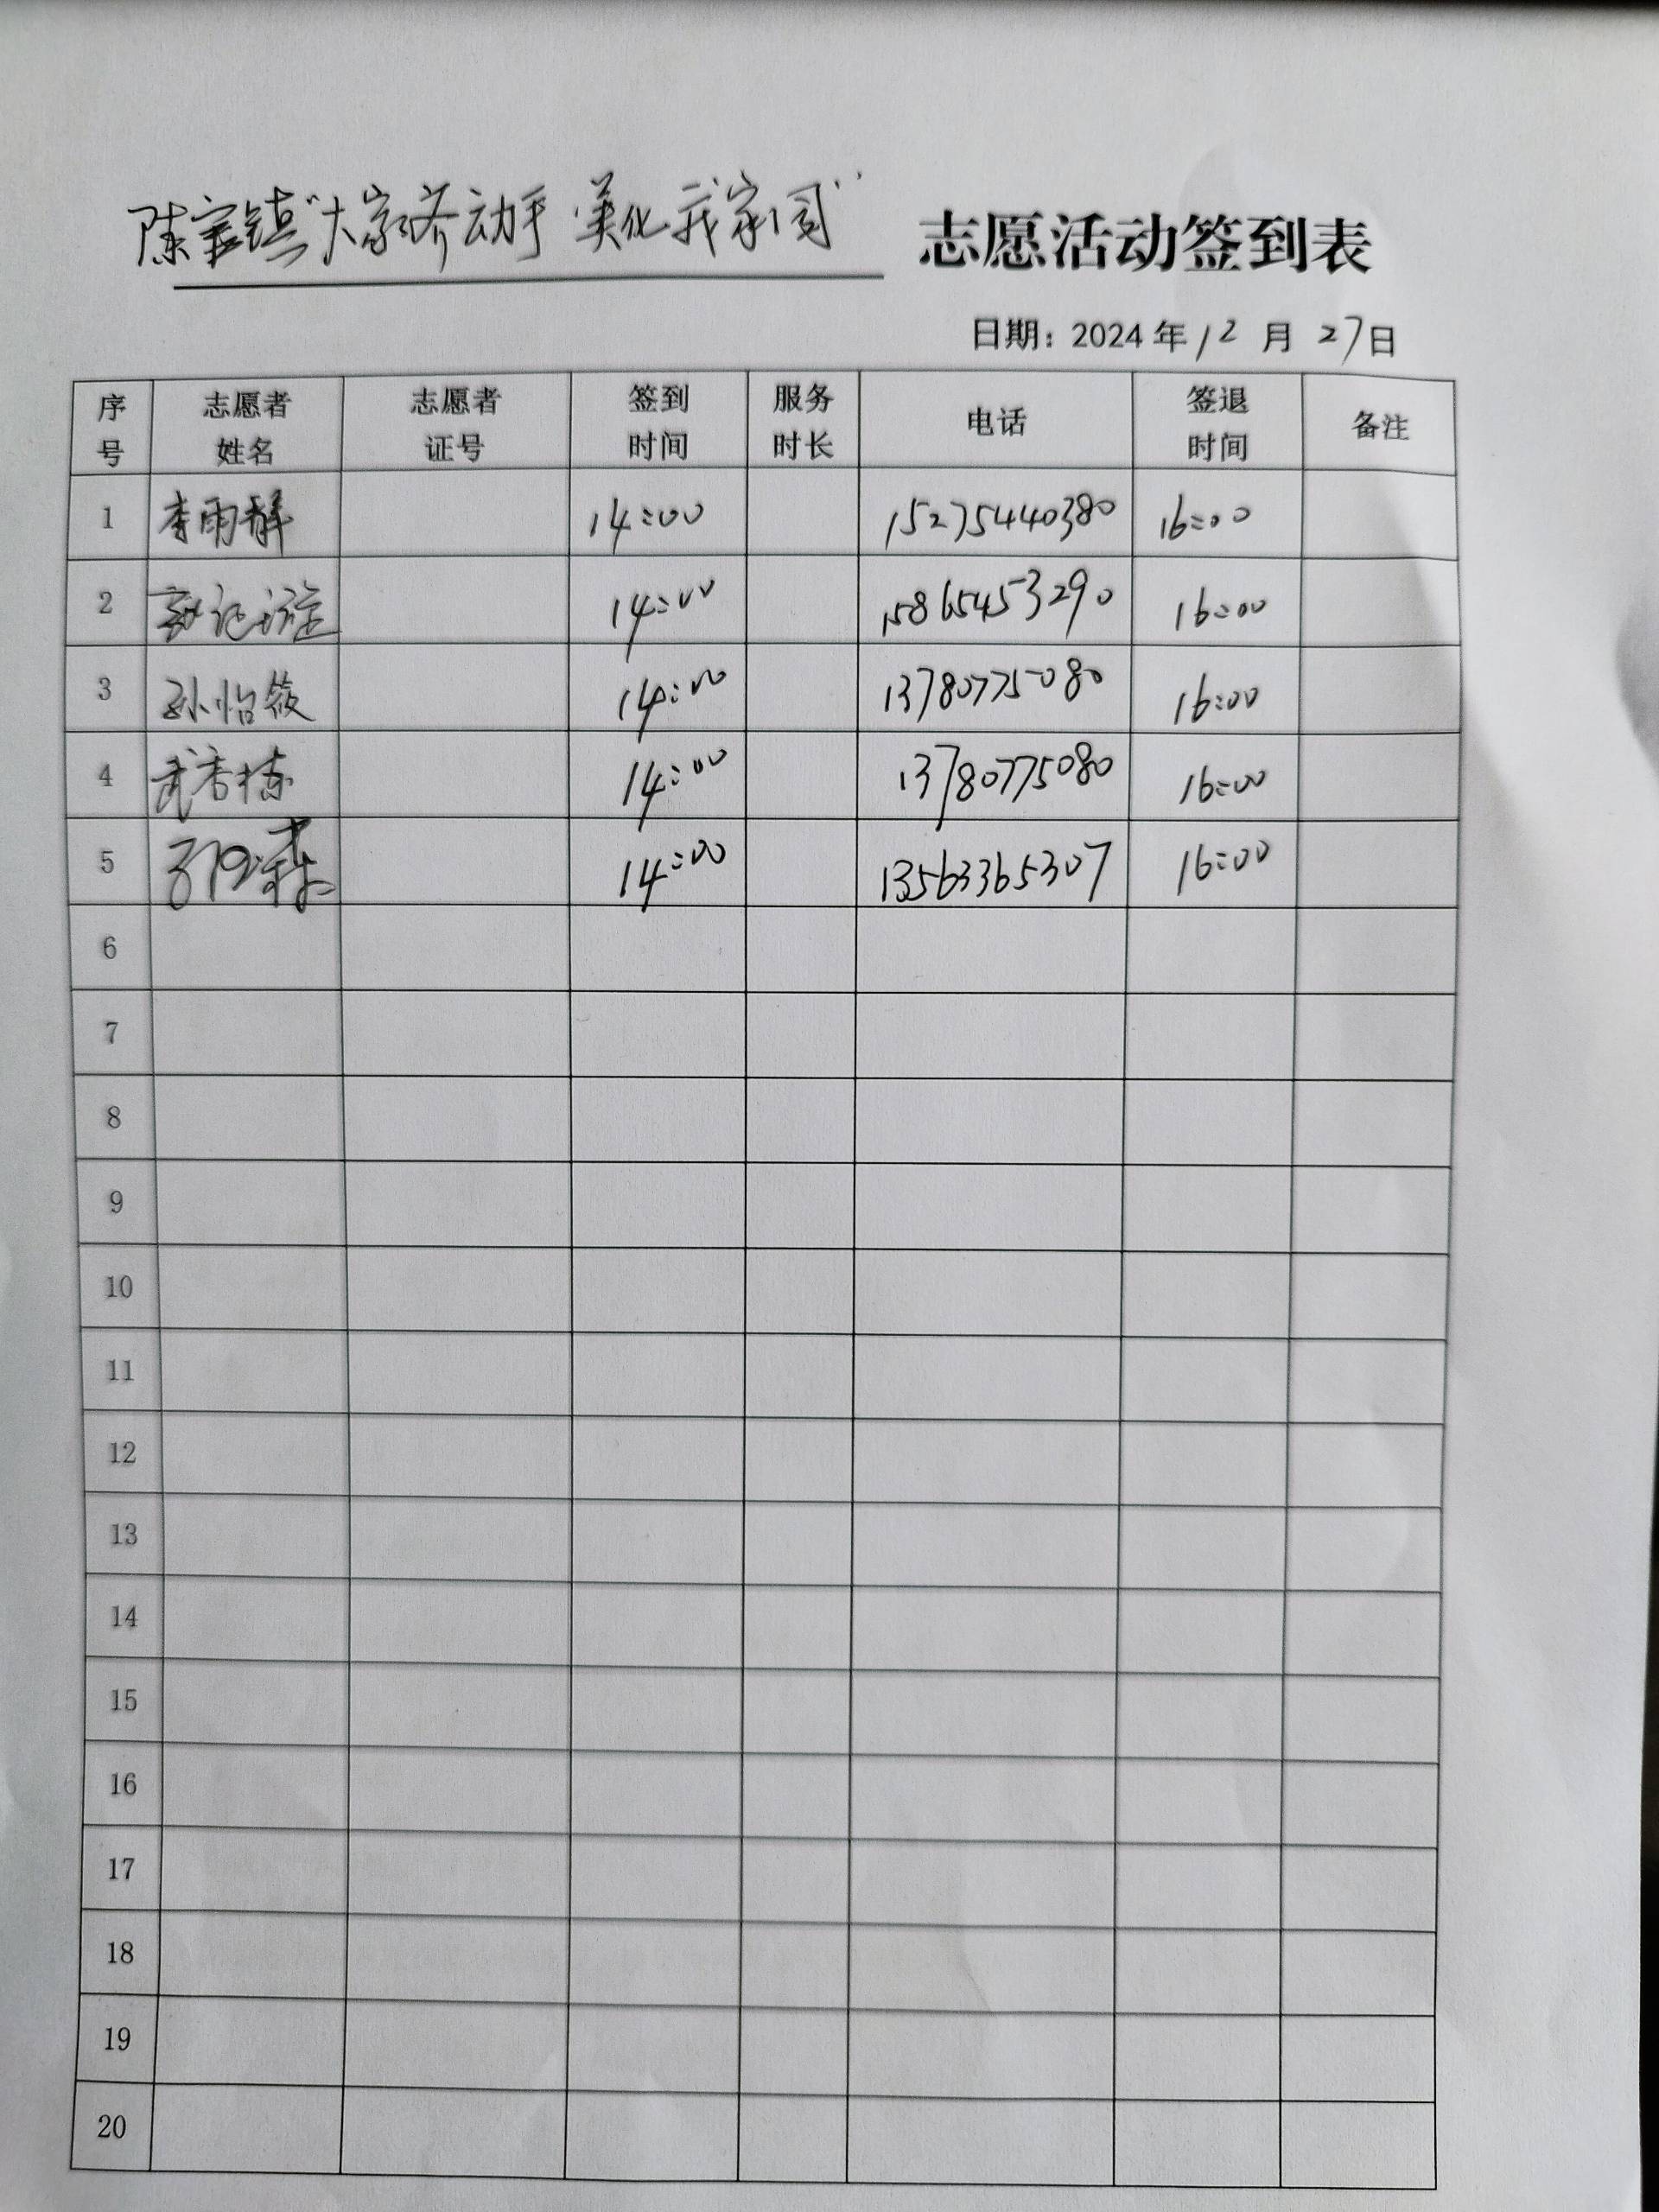 陈家镇“大家齐动手 美化我家园” 志愿活动签到表
日期：2024年12月27日
序号 志愿者姓名 志愿者证号 签到时间 服务时长 电话 签退时间 备注
1 李雨群 14:00 15275440380 16:00
2 14:00 15865453290 16:00
3 孙怡筱 14:00 13780775080 16:00
4 武杏栋 14:00 13780775080 16:00
5 14:00 13563365307 16:00
6
7
8
9
10
11
12
13
14
15
16
17
18
19
20